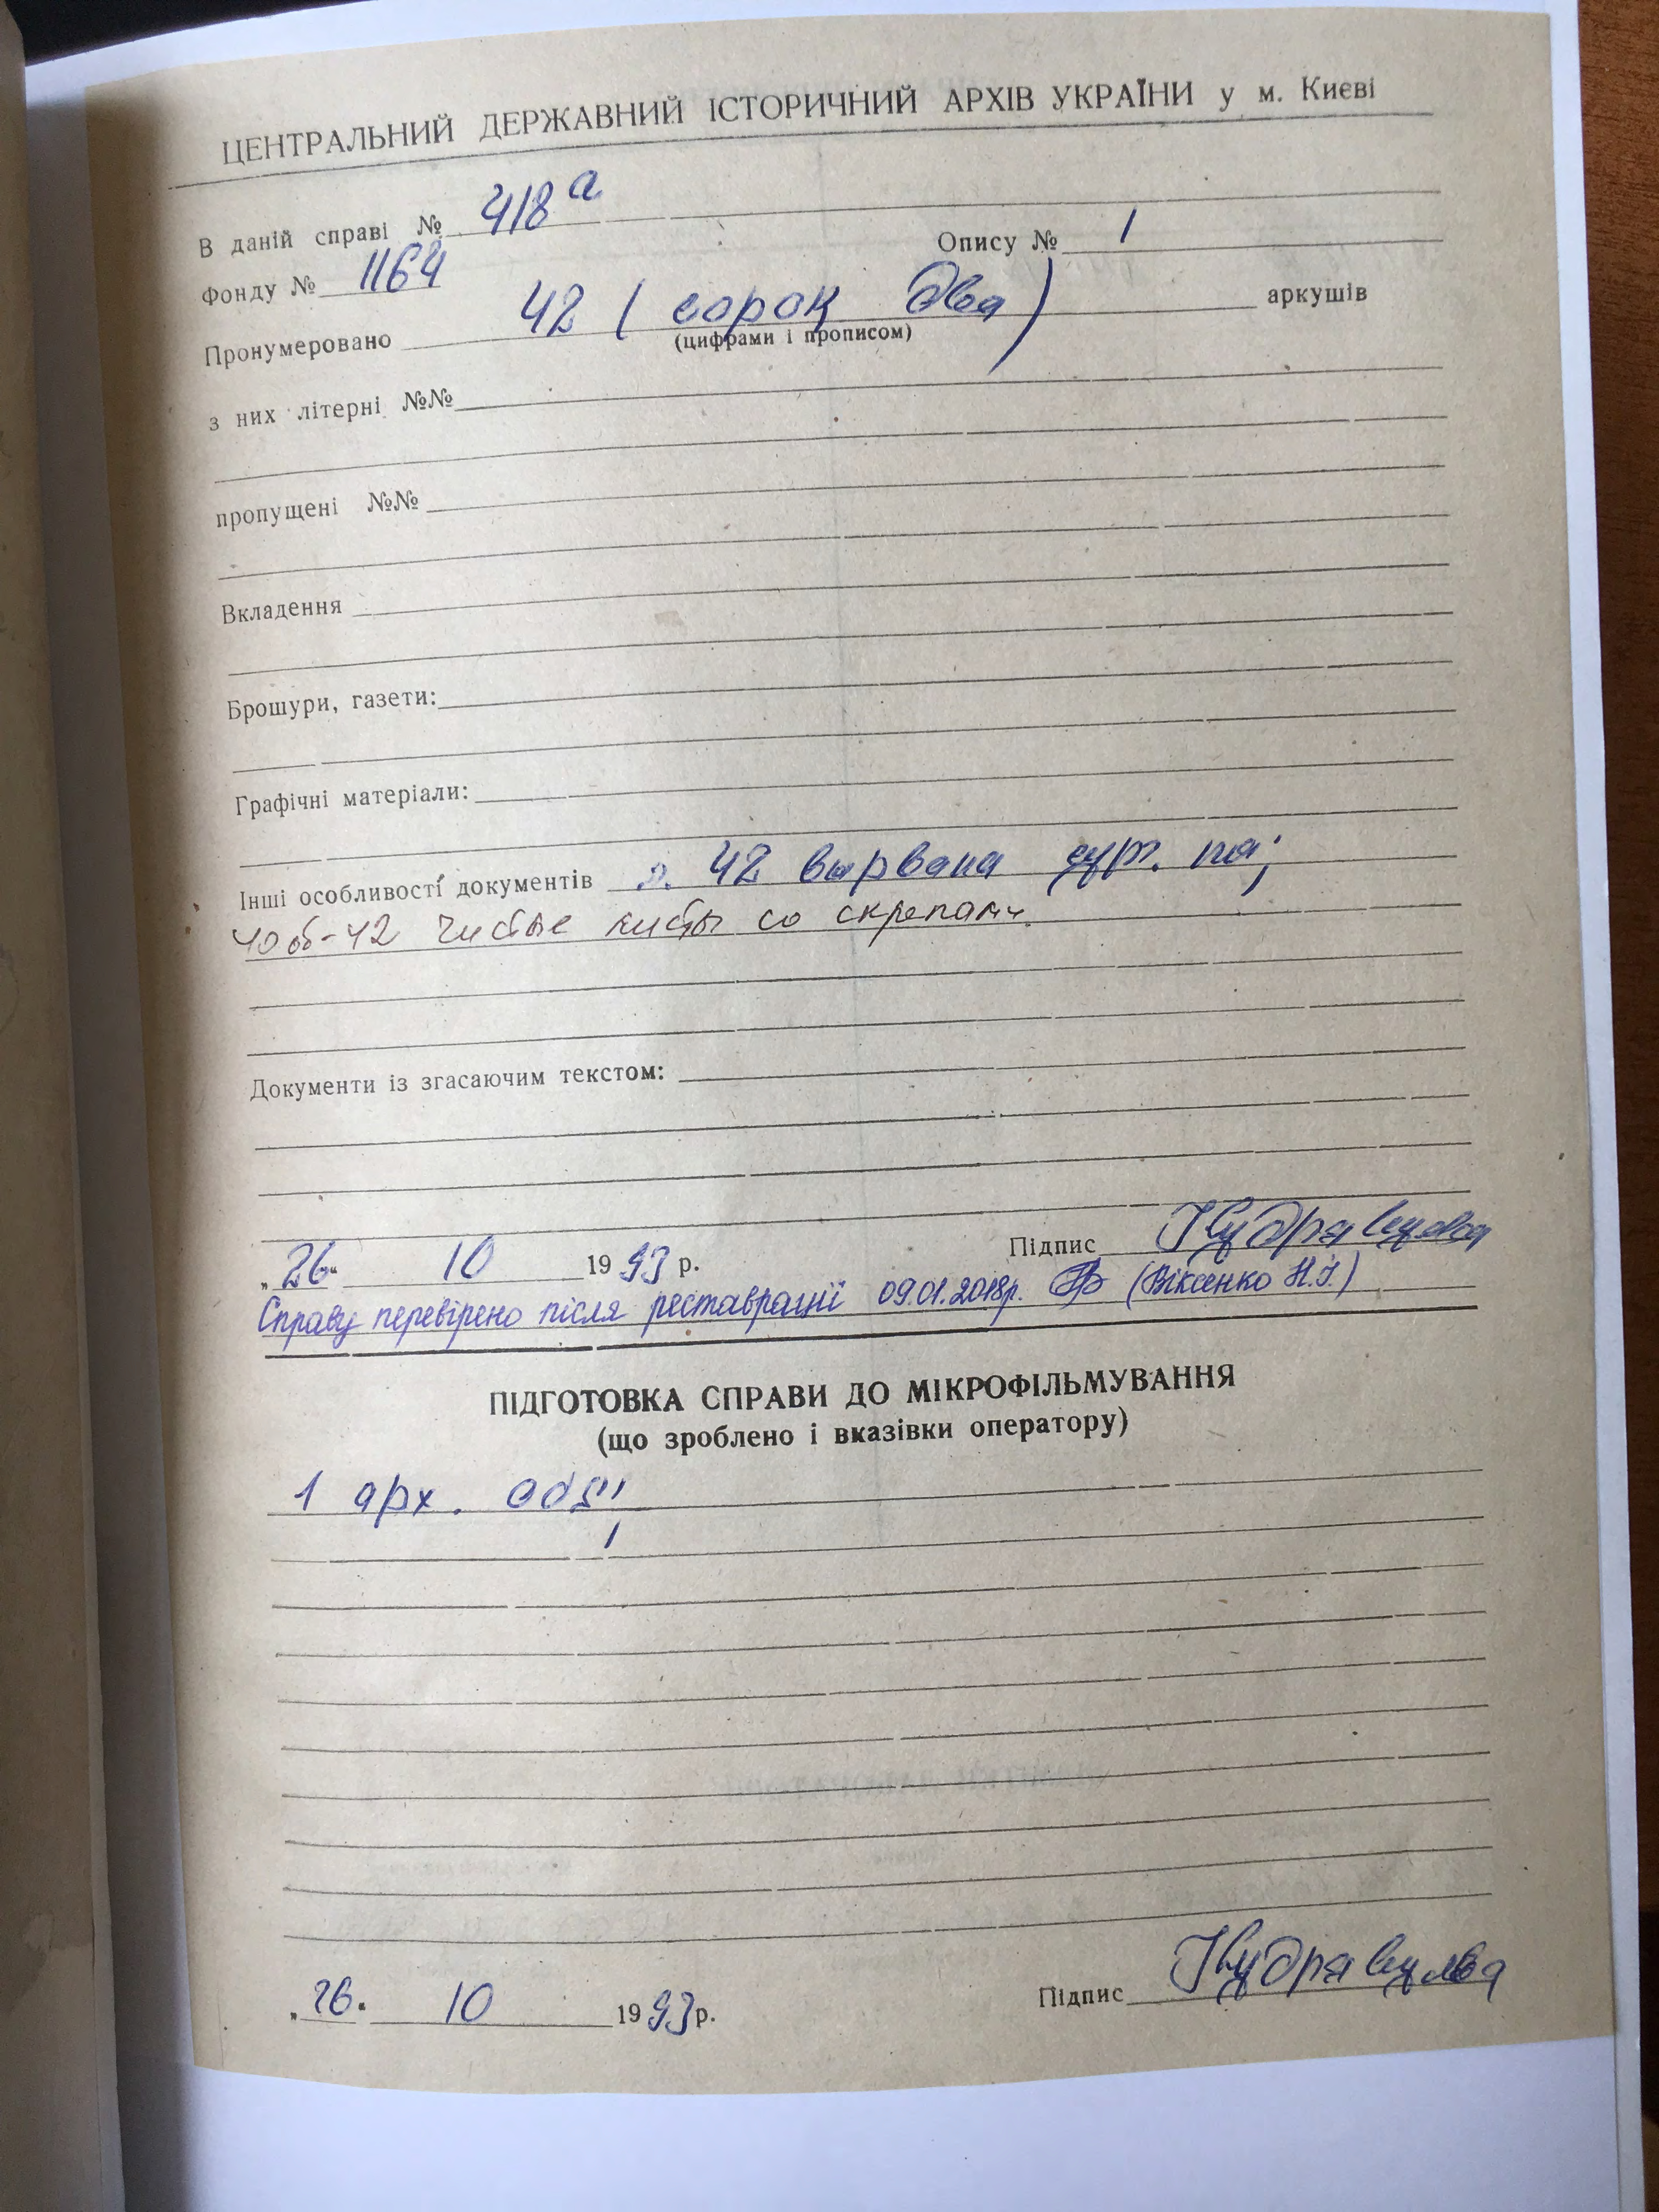 ЦЕНТРАЛЬНИЙ ДЕРЖАВНИЙ ІСТОРИЧНИЙ АРХІВ УКРАЇНИ у м. Києві
В даній справі № 418 а
Фонду № 1164 Опису № 1
Пронумеровано 42 ( сорок два ) аркушів
(цифрами і прописом)
з них літерні №№
пропущені №№
Вкладення
Брошури, газети:
Графічні матеріали:
Інші особливості документів л. 42 вырвана
40 об-42 чистые листы со скрепами.
Документи із згасаючим текстом:
„26" 10 1993 р. Підпис Кудрявцева
Справу перевірено після реставрації 09.01.2018р. (Віксенко Н.І.)
ПІДГОТОВКА СПРАВИ ДО МІКРОФІЛЬМУВАННЯ
(що зроблено і вказівки оператору)
1 арх.
„26" 10 1993р. Підпис Кудрявцева